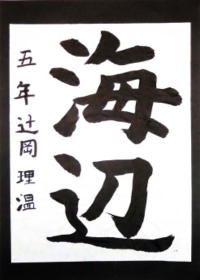 海辺
五年辻岡理温